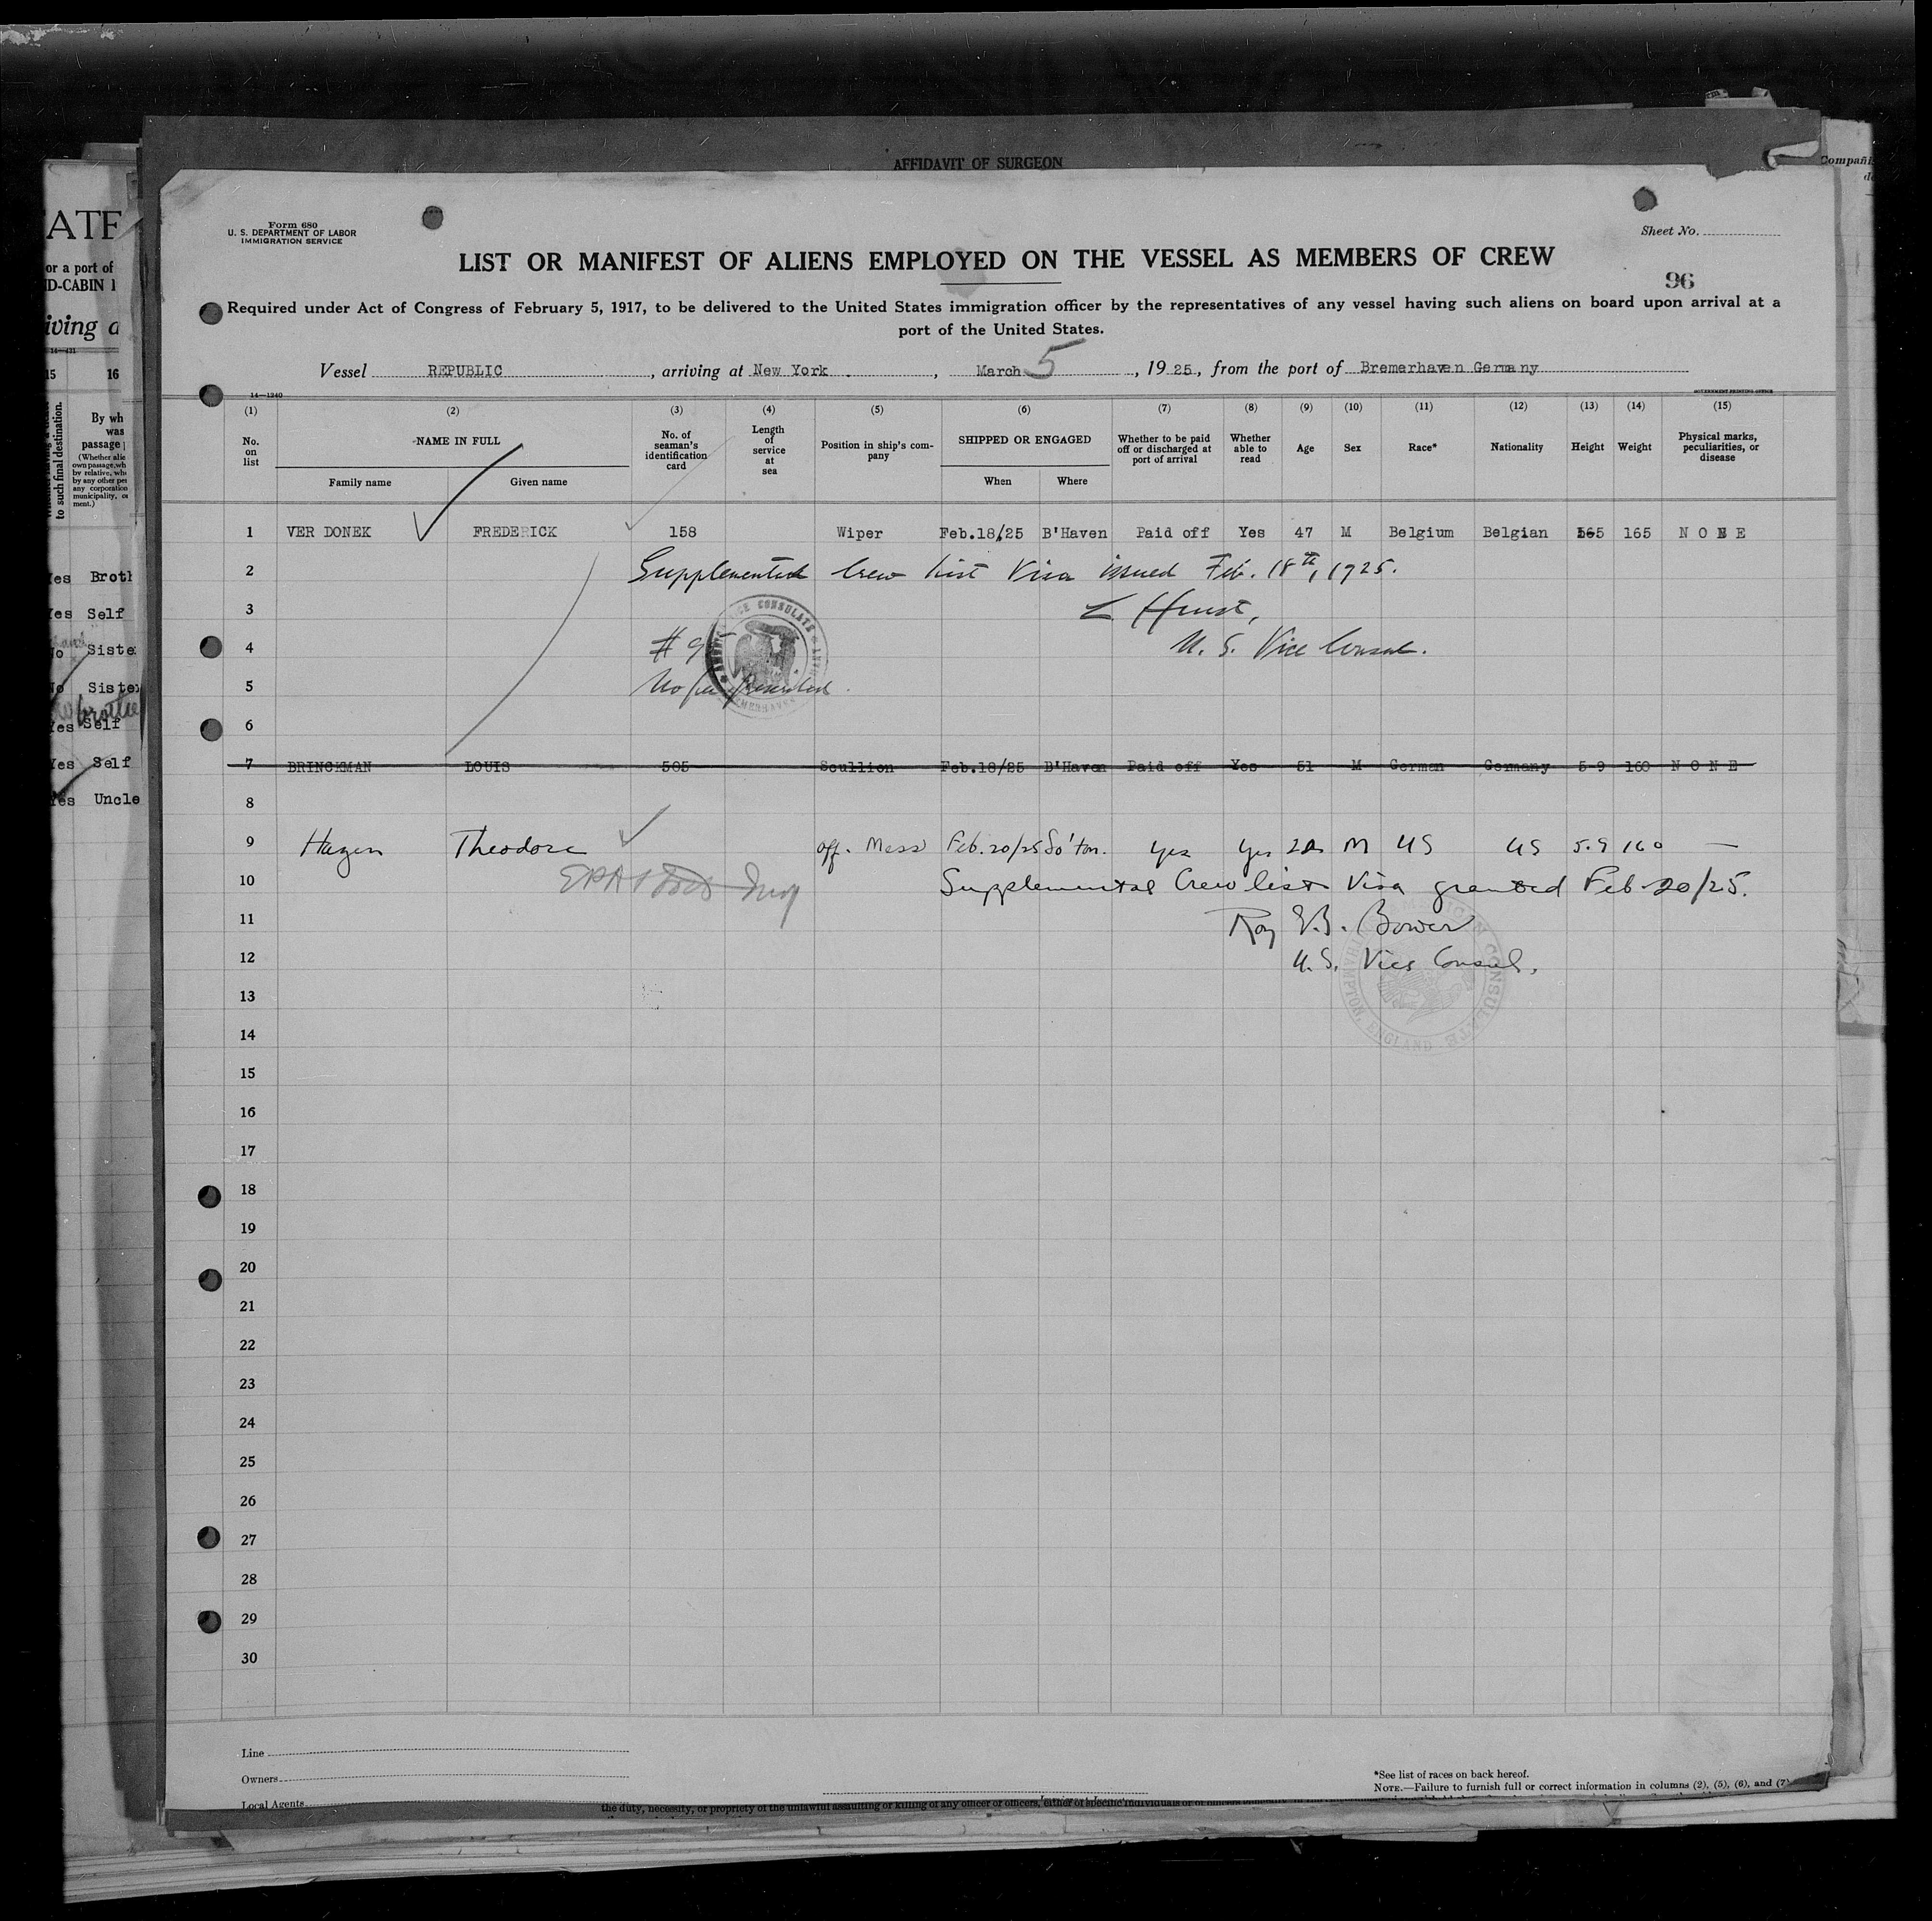 AFFIDAVIT OF SURGEON
Form 680
U. S. DEPARTMENT OF LABOR
IMMIGRATION SERVICE
Sheet No.
LIST OR MANIFEST OF ALIENS EMPLOYED ON THE VESSEL AS MEMBERS OF CREW
96
Required under Act of Congress of February 5, 1917, to be delivered to the United States immigration officer by the representatives of any vessel having such aliens on board upon arrival at a
port of the United States.
Vessel REPUBLIC, arriving at New York, March 5, 1925, from the port of Bremerhaven Germany
14—1240
GOVERNMENT PRINTING OFFICE
(1) (2) (3) (4) (5) (6) (7) (8) (9) (10) (11) (12) (13) (14) (15)
No. on list NAME IN FULL Family name Given name No. of seaman's identification card Length of service at sea Position in ship's company SHIPPED OR ENGAGED When Where Whether to be paid off or discharged at port of arrival Whether able to read Age Sex Race* Nationality Height Weight Physical marks, peculiarities, or disease
1 VER DONEK FREDERICK 158 Wiper Feb.18/25 B'Haven Paid off Yes 47 M Belgium Belgian 165 NONE
2 Supplemental Crew List Visa issued Feb. 18th, 1925.
3
4 U. S. Vice Consul.
5 No fee
6
7 BRINCKMAN LOUIS 505 Scullion Feb.18/25 B'Haven Paid off Yes 51 M German Germany 5-9 160 NONE
8
9 Hagen Theodore off. Mess Feb.20/25 So'ton. yes yes M US US 5.9 160 —
10 Supplemental Crew list Visa granted Feb 20/25.
11 Roy E.B. Bower
12 U.S. Vice Consul.
13
14
15
16
17
18
19
20
21
22
23
24
25
26
27
28
29
30
Line
Owners
Local Agents
*See list of races on back hereof.
NOTE.—Failure to furnish full or correct information in columns (2), (5), (6), and (7)
the duty, necessity, or propriety of the unlawful assaulting or killing of any officer or officers, either of specific individuals or of officers